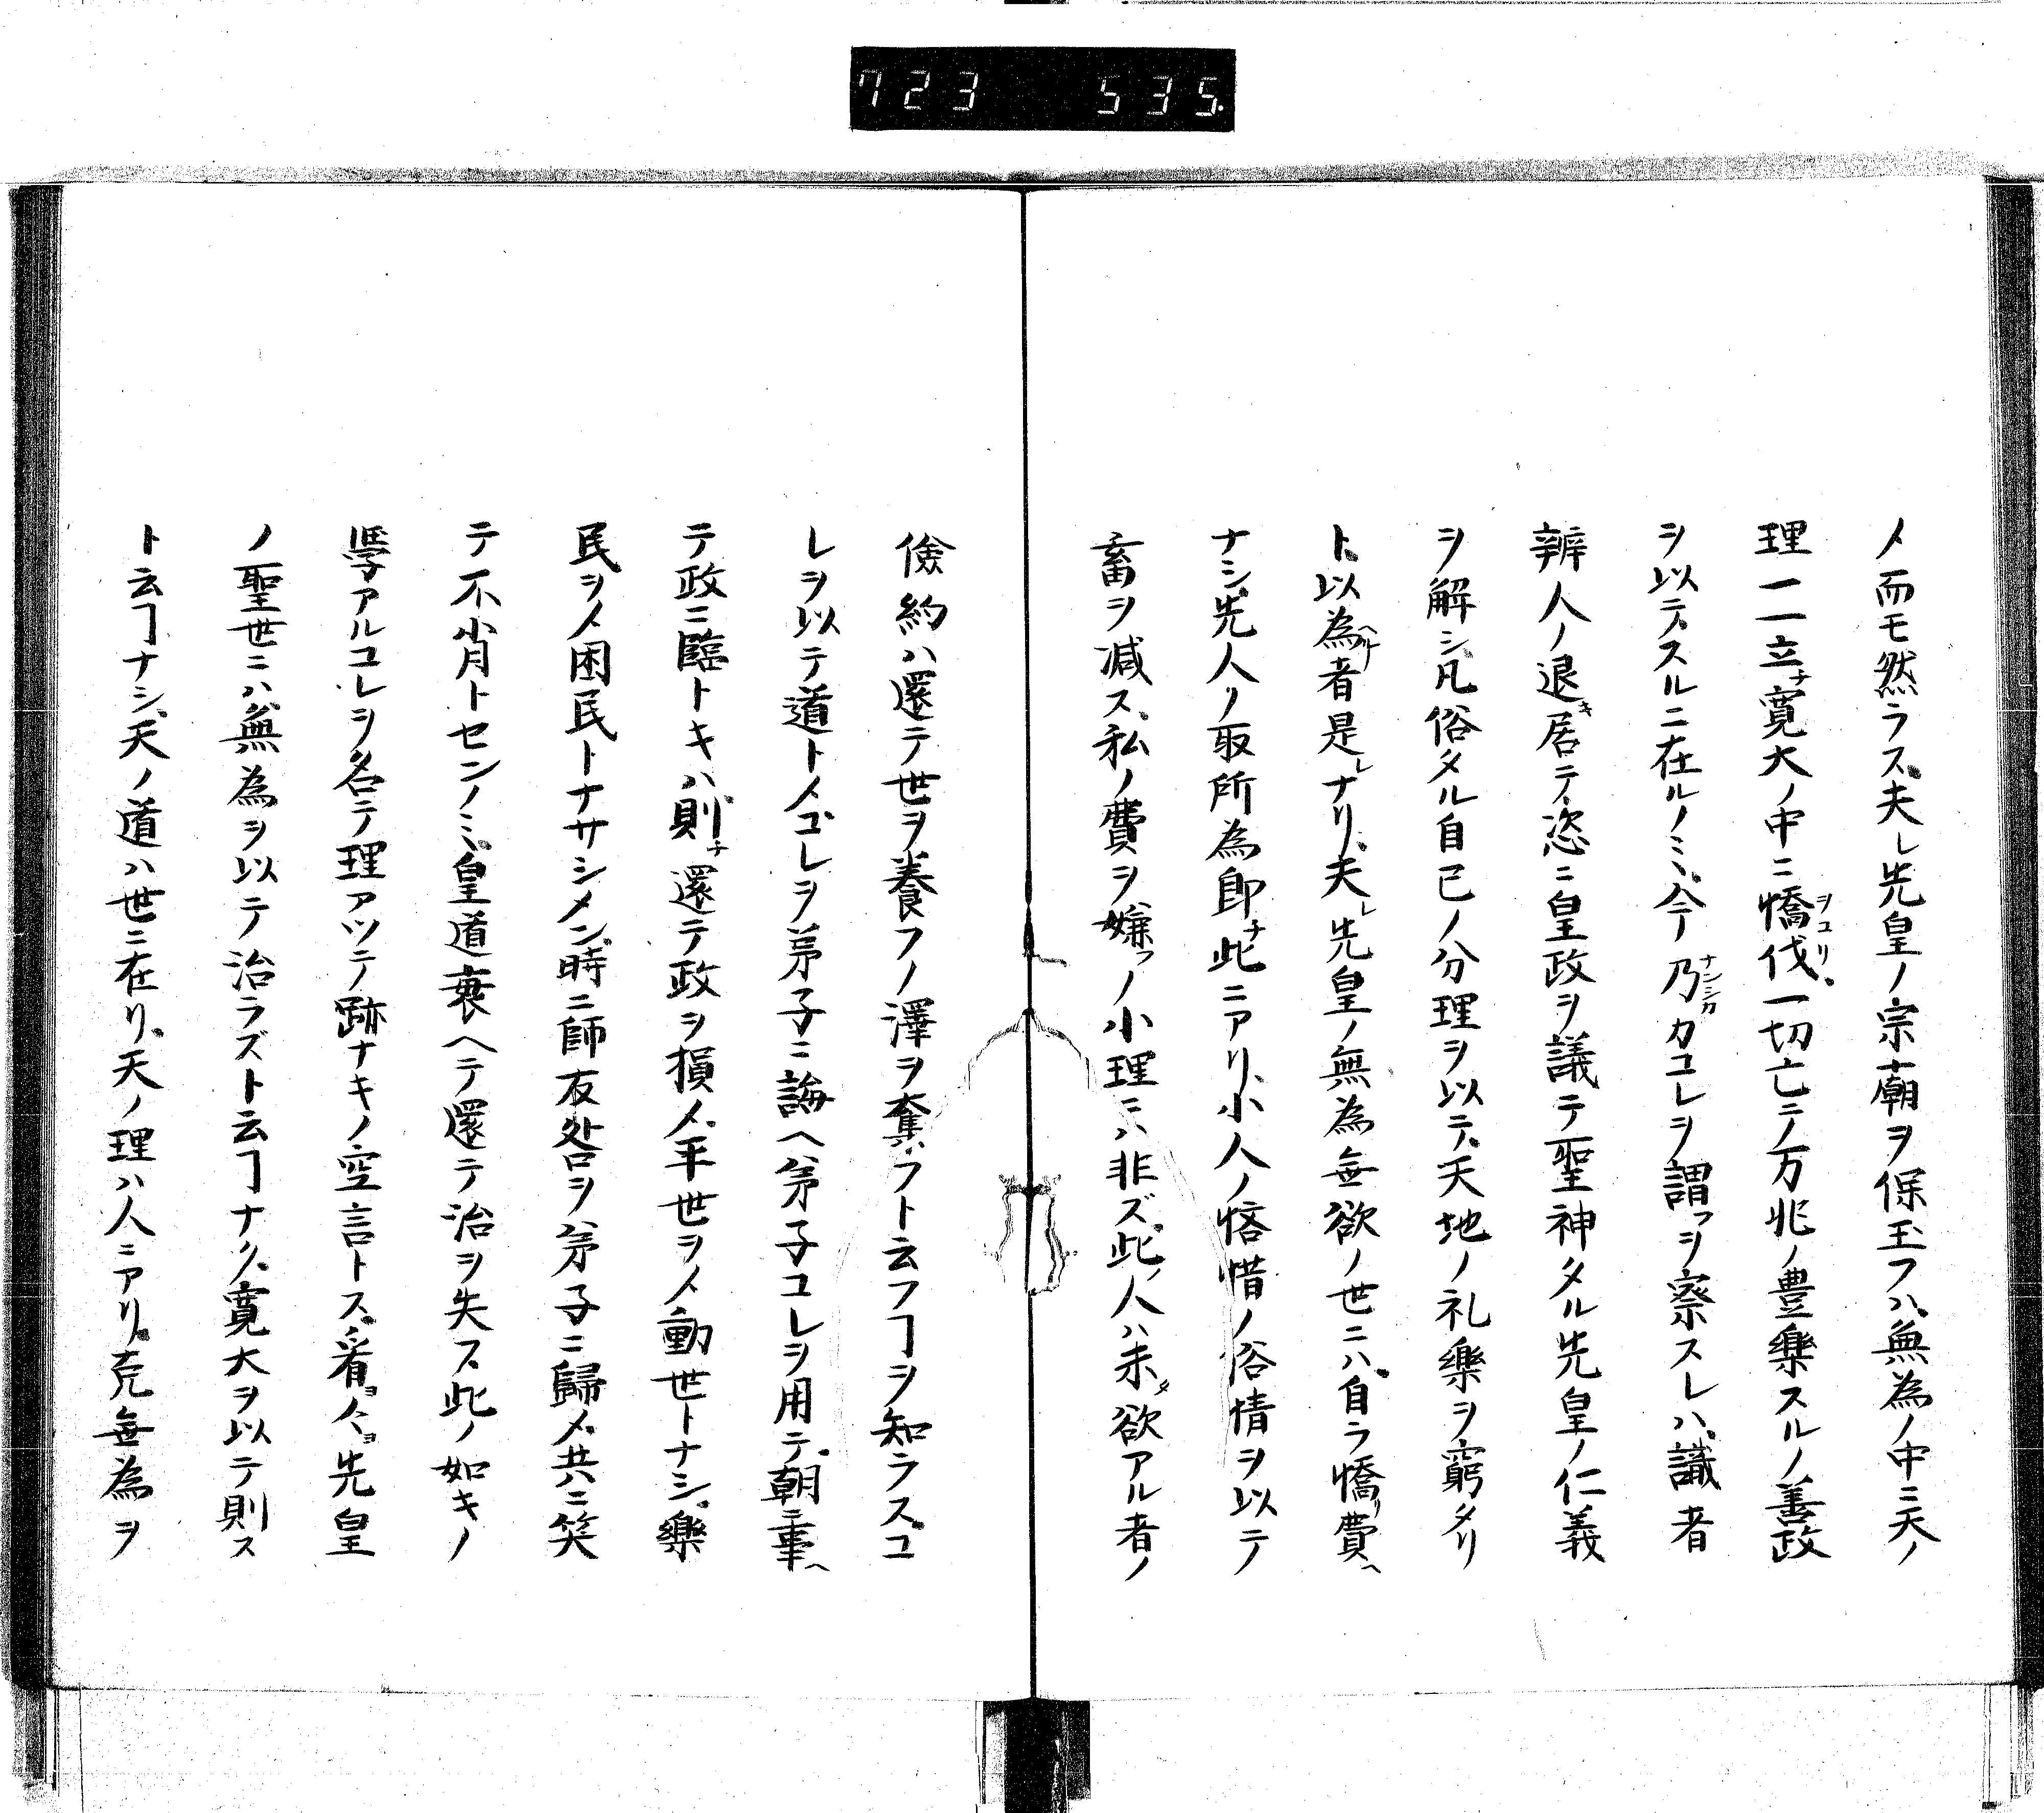 723 535.
〆而モ然ラス、夫レ先皇ノ宗廟ヲ保玉フハ、無為ノ中ニ天ノ
理一一立チ、寛大ノ中ニ憍伐ヲコリ、一切亡テノ万兆ノ豊樂スルノ善政
ヲ以テスルニ在ルノミ、今乃ナンシカカコレヲ謂フヲ察スレハ、識者
辨人ノ退キ居テ、恣ニ皇政ヲ議テ聖神タル先皇ノ仁義
ヲ解シ、凡俗タル自己ノ分理ヲ以テ、天地ノ礼樂ヲ窮タリ
ト、以為ヘル者是レナリ、夫レ先皇ノ無為無欲ノ世ニハ、自ラ憍リ費ヘ
ナシ、先人ノ取所為即チ此ニアリ、小人ノ悋惜ノ俗情ヲ以テ
畜ヲ減ス、私ノ費ヲ嫌フノ小理ニハ非ズ、此ノ人ハ未タ欲アル者ノ
儉約ハ還テ世ヲ養フノ澤ヲ奪フト云フヿヲ知ラス、コ
レヲ以テ道ト〆コレヲ弟子ニ誨ヘ弟子コレヲ用テ、朝ニ事ヘ
テ政ニ臨トキハ、則チ還テ政ヲ損〆、平世ヲ〆動世トナシ、樂
民ヲ〆困民トナサシメン、時ニ師友咎ヲ弟子ニ歸〆、共ニ笑
テ不肖トセンノミ、皇道衰ヘテ還テ治ヲ失ス、此ノ如キノ
學アルコレヲ名テ理アツテ跡ナキノ空言トス、看ヨ人ヨ、先皇
ノ聖世ニハ、無為ヲ以テ治ラズト云ヿナク、寛大ヲ以テ則ス
ト云ヿナシ、天ノ道ハ世ニ在リ、天ノ理ハ人ニアリ、克無為ヲ